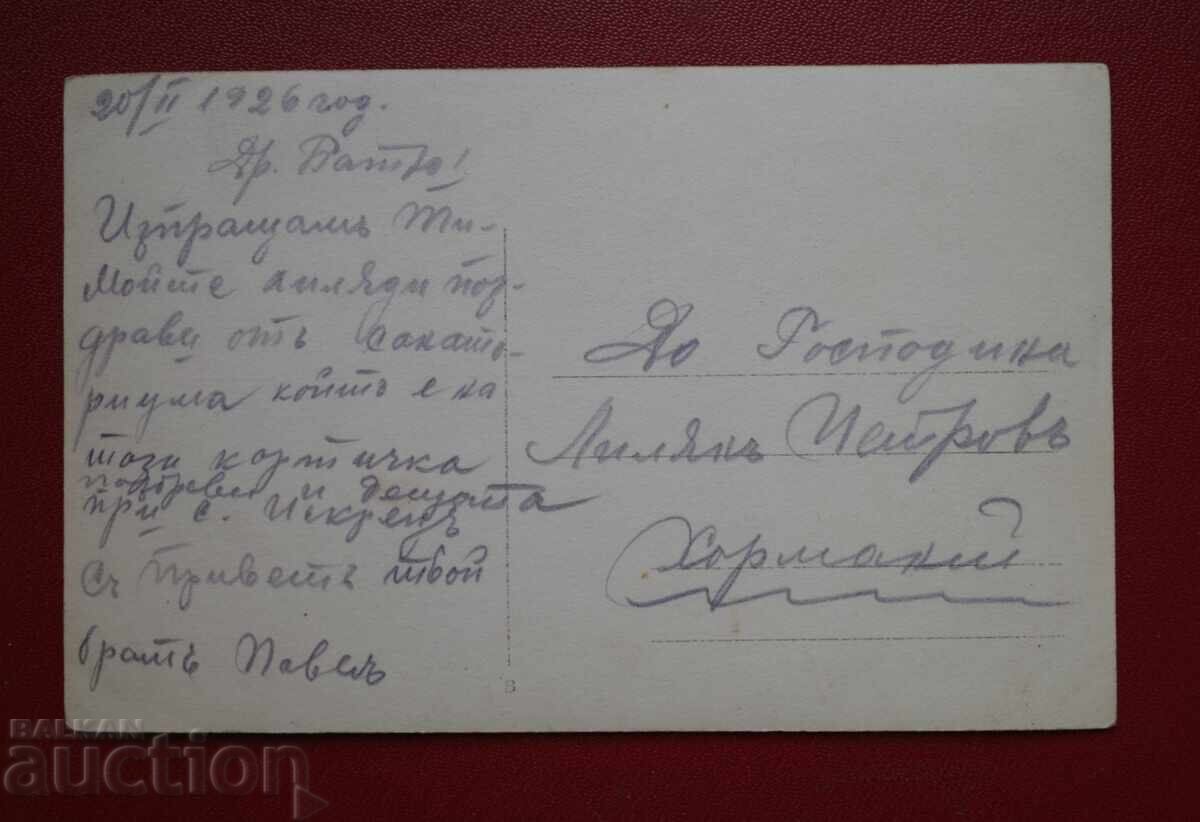 20/II 1926 год.
Др. Батю!
Изпращамъ Ти-
Моите хиляди поз-
драви отъ санато-
риума който е на
тази картичка
поздрави и децата
при с. Искрецъ
съ Приветъ твой
братъ Павелъ
До Господина
Лилянъ Петровъ
Хормакий
В
BALKAN
auction